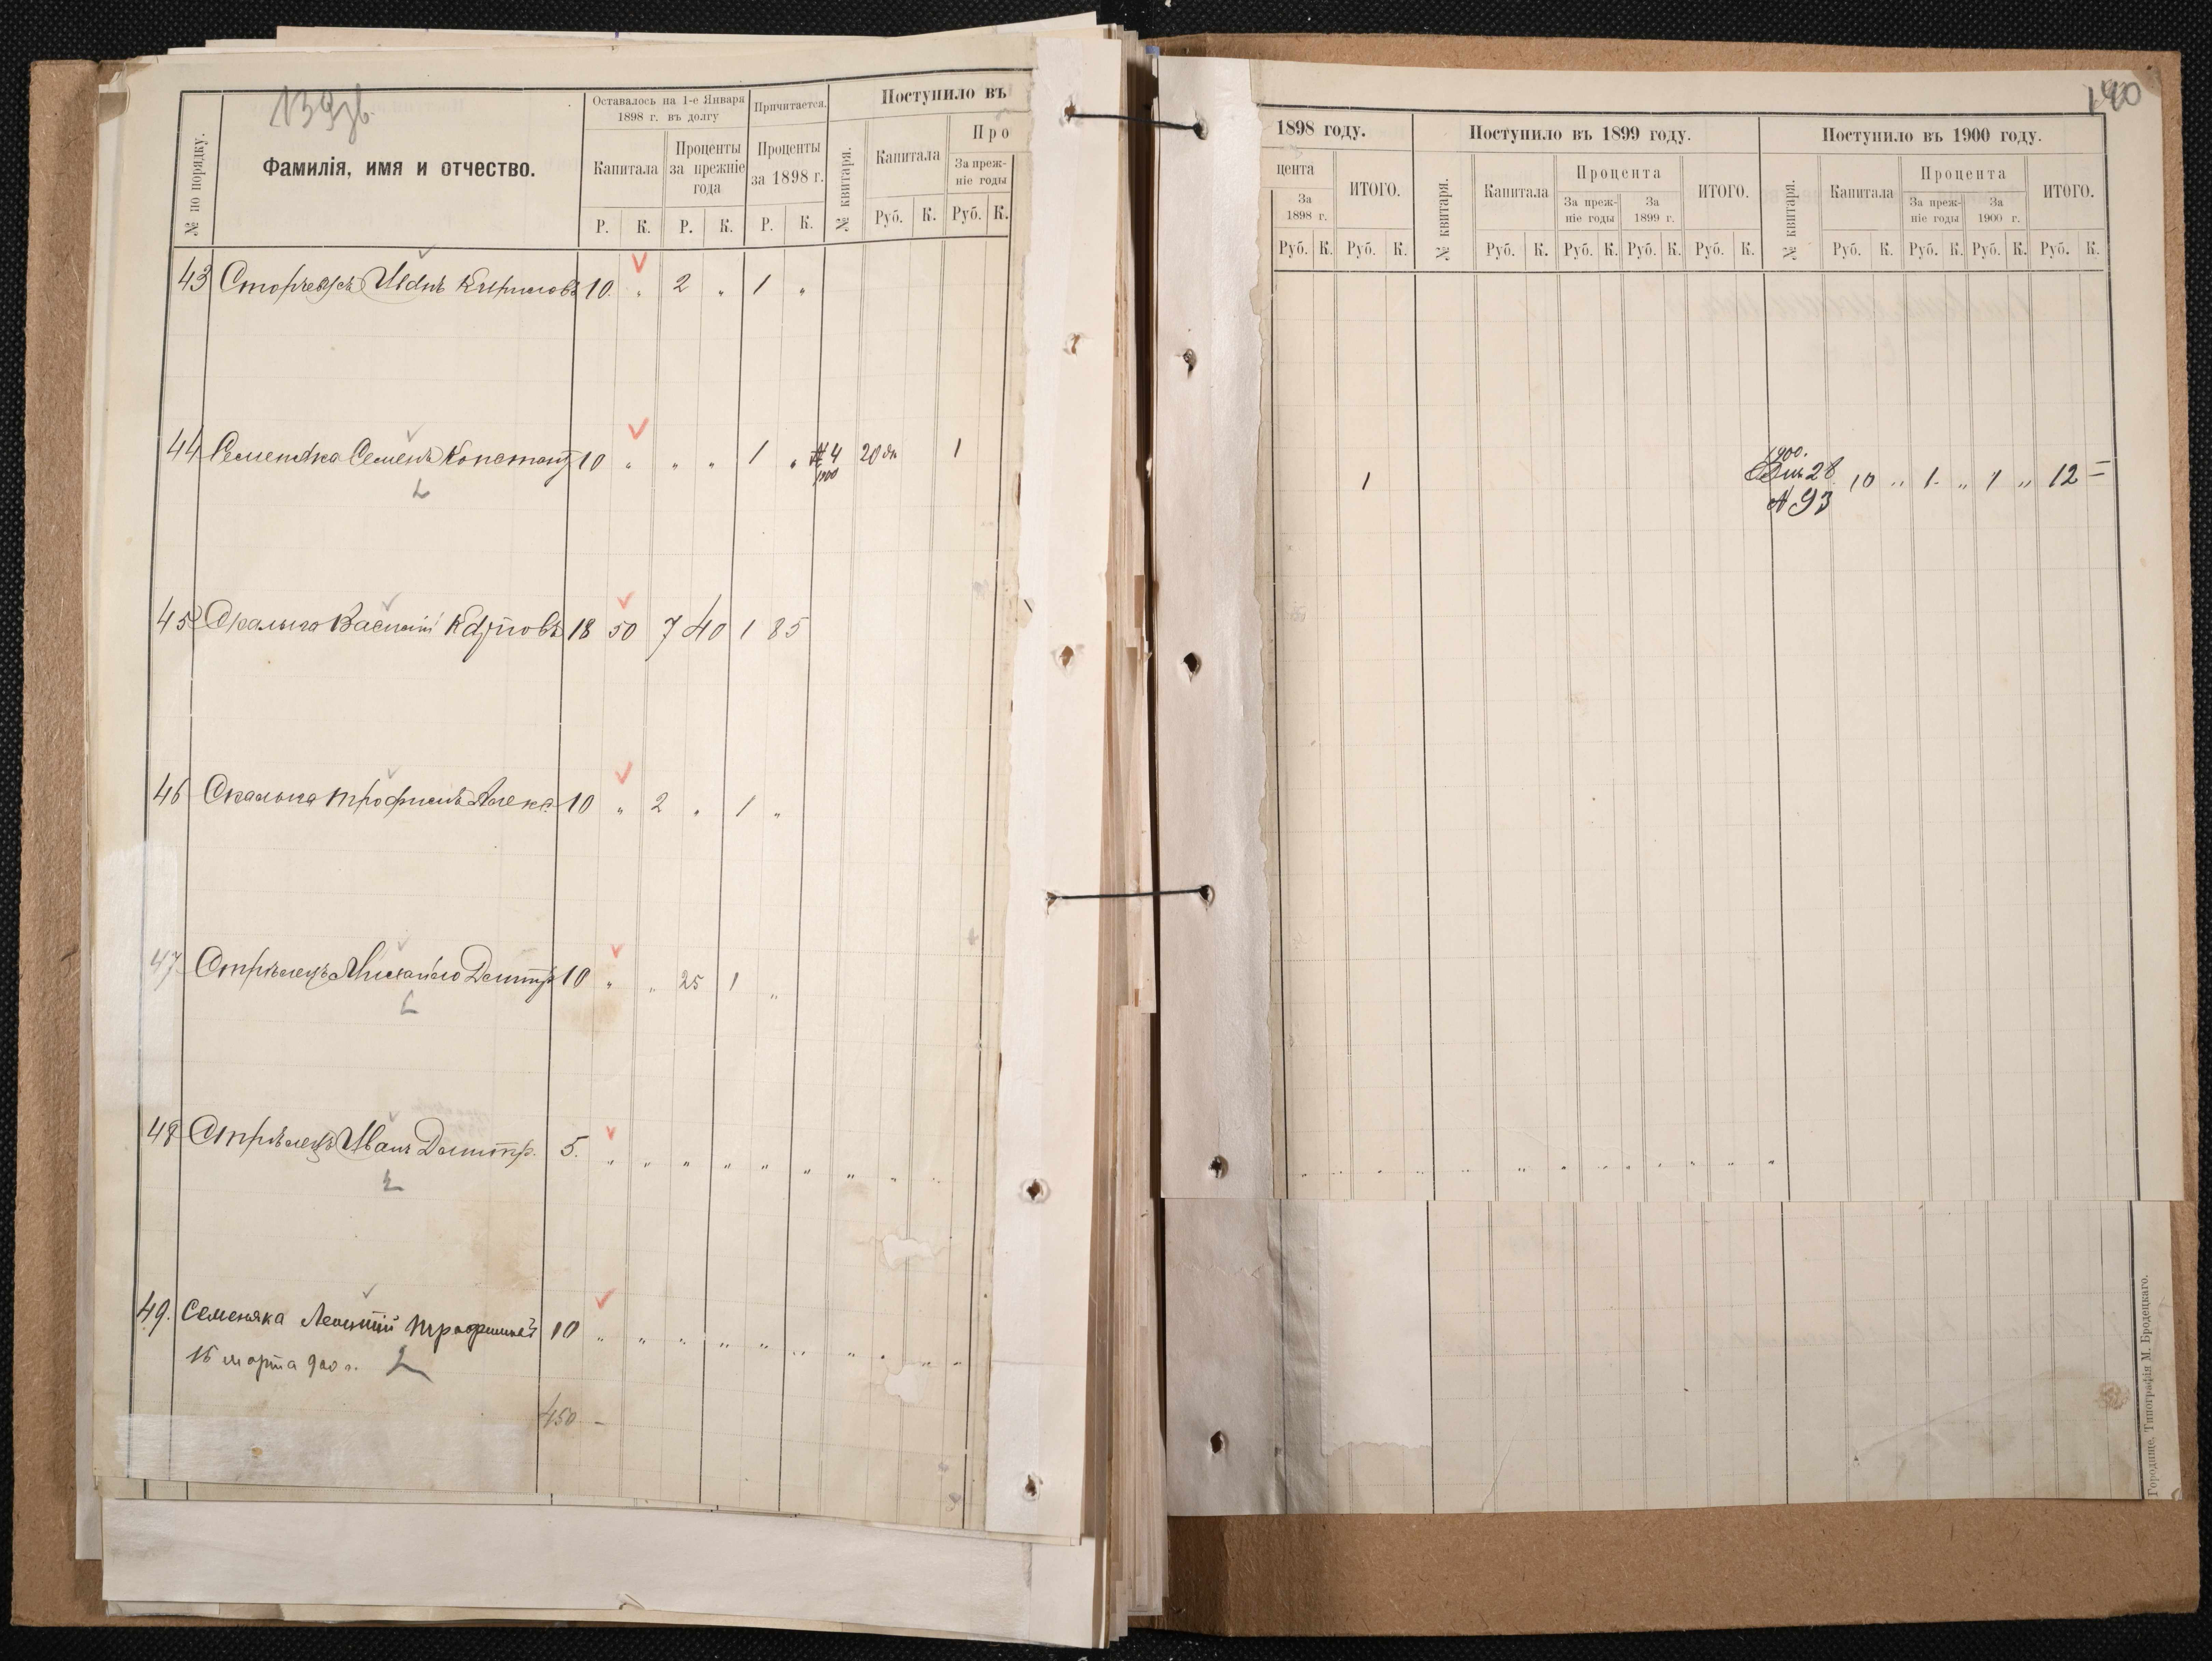 139 об.
№ по порядку.
Фамилія, имя и отчество.
Оставалось на 1-е Января 1898 г. въ долгу
Капитала
Проценты за прежніе года
Причитается.
Проценты за 1898 г.
Поступило въ
№ квитаря.
Капитала
Про
За прежніе годы
Р. К. Р. К. Р. К. Руб. К. Руб. К.
43 Иванъ 10 „ 2 „ 1 „
44 Семеняка Семенъ Констант 10 „ „ „ 1 „ № 4 20 1
1900
45 Скалыга Василій Карповъ 18 50 7 40 1 85
46 Скалыга Трофимъ Алекс 10 „ 2 „ 1 „
47 Стрѣлецъ Михайло Дмитр 10 „ „ 25 1 „
48 Стрѣлецъ Иванъ Дмитр. 5. „ „ „ „ „ „ „ „ „
49. Семеняка Леонтій Трофимовъ 10 „ „ „ „ „ „ „ „ „
16 марта 900 г.
450 –
140
1898 году.
цента
За 1898 г.
ИТОГО.
Поступило въ 1899 году.
№ квитаря.
Капитала
Процента
За прежніе годы
За 1899 г.
ИТОГО.
Поступило въ 1900 году.
№ квитаря.
Капитала
Процента
За прежніе годы
За 1900 г.
ИТОГО.
Руб. К. Руб. К. Руб. К. Руб. К. Руб. К. Руб. К. Руб. К. Руб. К. Руб. К. Руб. К.
1900.
1 28 10 „ 1 „ 1 „ 12 =
№ 93
Городище, Типографія М. Бродецкаго.